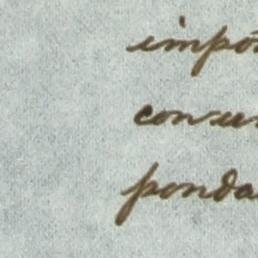 impo
conse
ponda